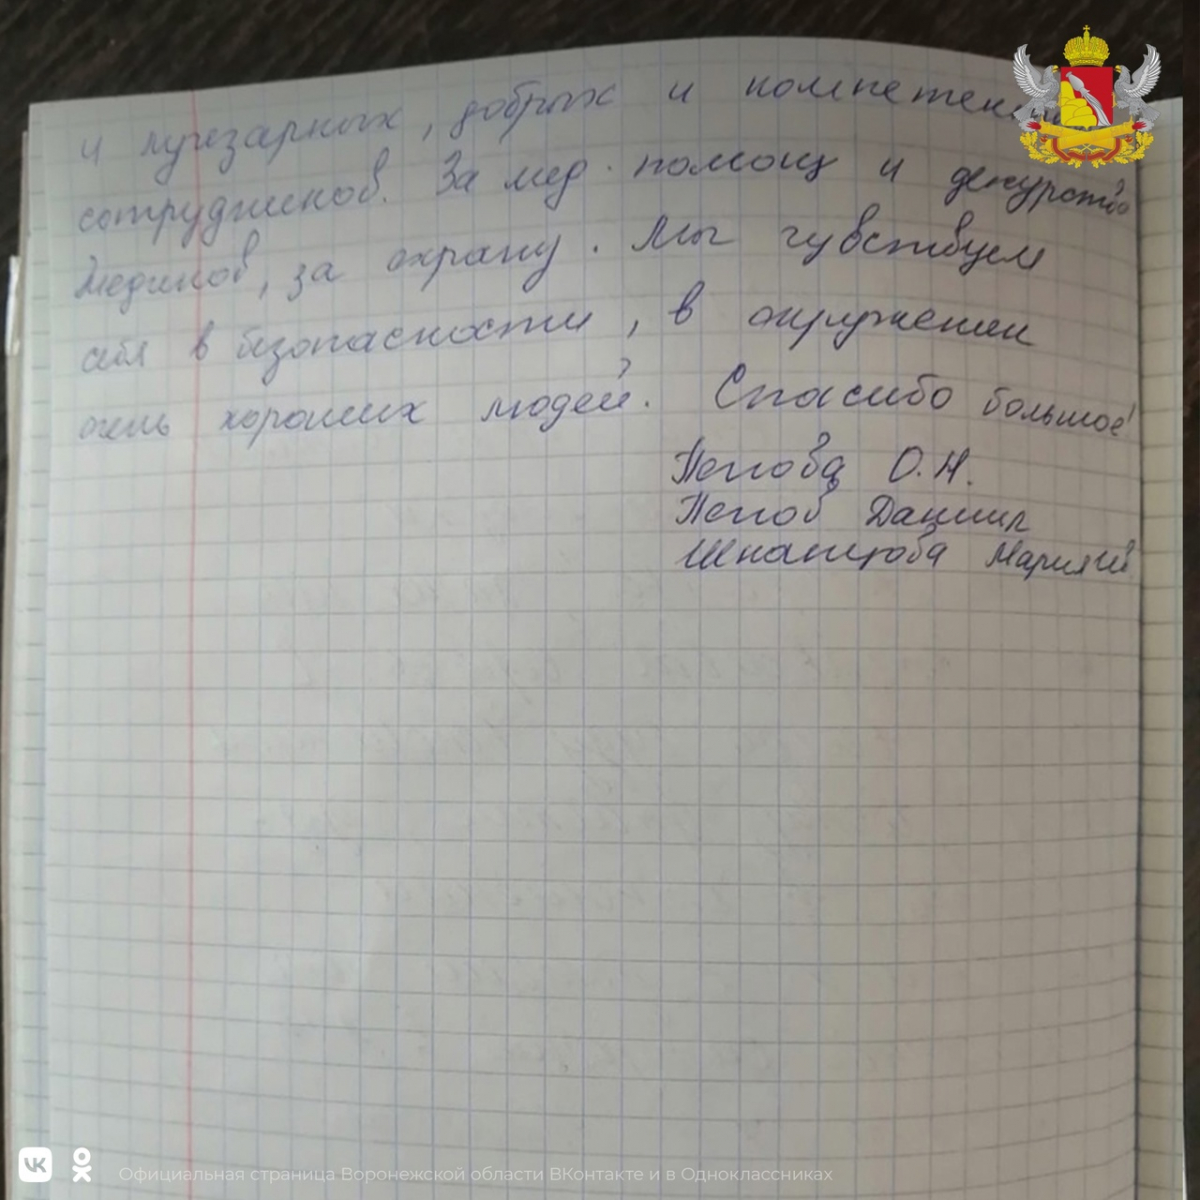 и лучезарных, добрых и компетен
сотрудников. За мед. помощ и дежурство
медиков, за охрану. Мы чувствуем
себя в безопасности, в окружении
очень хороших людей. Спасибо большое!
О.Н.
Даниил
Мария
Официальная страница Воронежской области ВКонтакте и в Одноклассниках